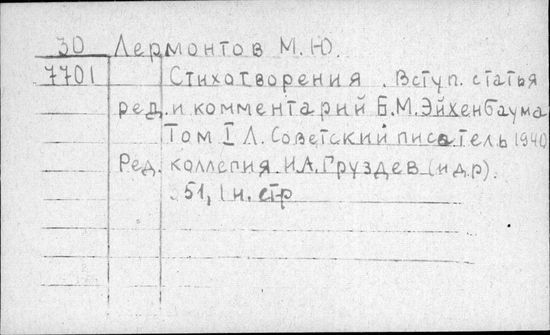 30 Лермонтов М.Ю.
7701 Стихотворения. Вступ. статья
ред. и комментарий Б.М.Эйхенбаума
Том I Л. Советский писатель 1940
Ред. коллегия И.А.Груздев (и др).
51, 1 н. стр